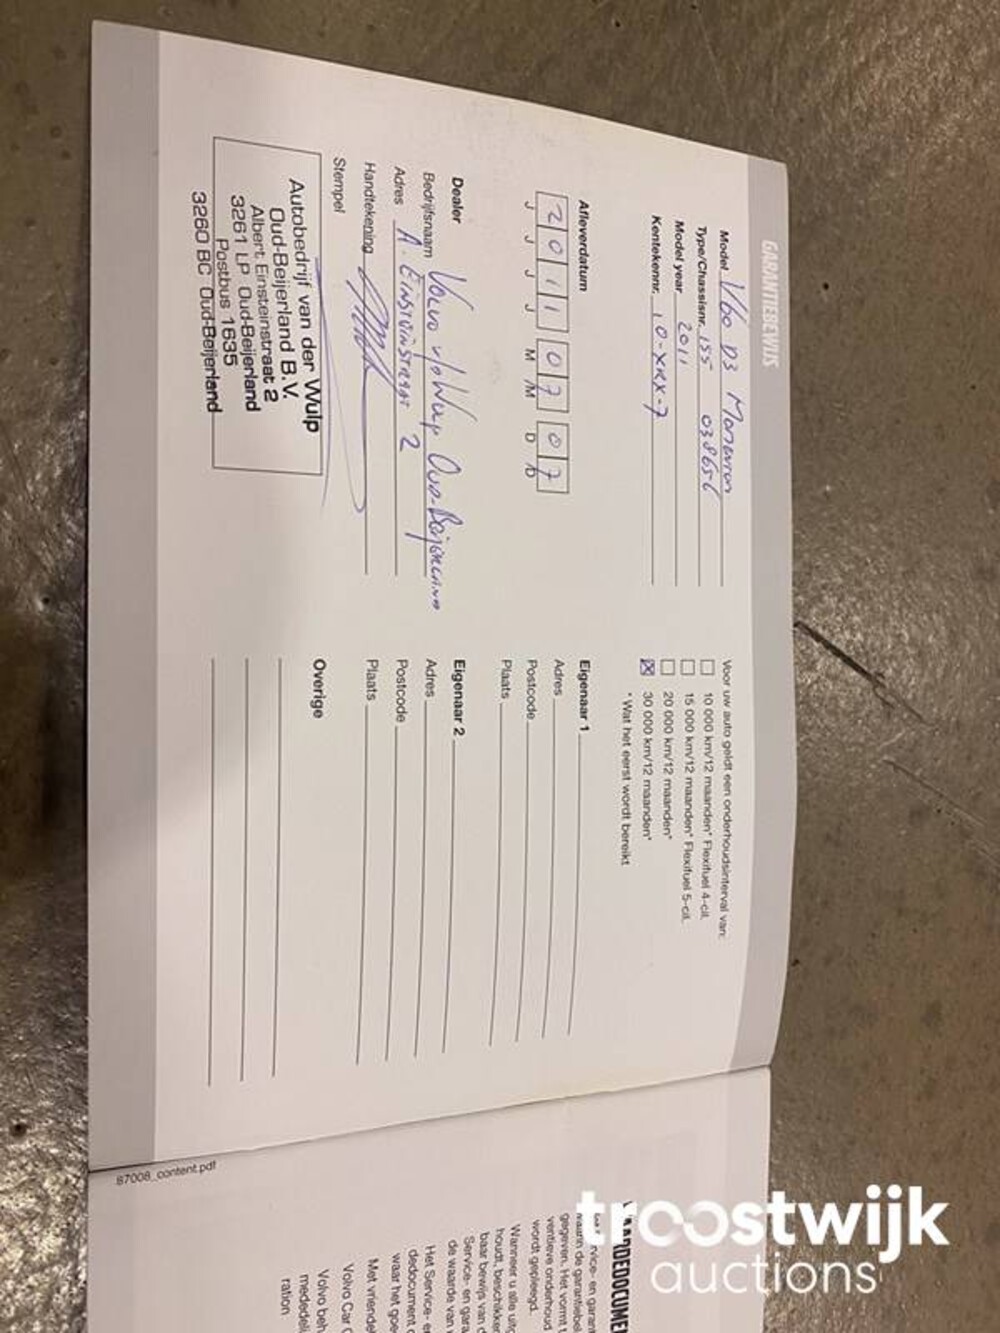 GARANTIEBEWIJS
Model V60 D3 Momentum
Type/Chassisnr. 155 038656
Model year 2011
Kentekennr. 10-XRX-7
Afleverdatum
2 0 1 1 0 7 0 7
J J J J M M D D
Dealer
Bedrijfsnaam Volvo v/d Wulp Oud-Beijerland
Adres A. Einsteinstraat 2
Handtekening
Stempel
Autobedrijf van der Wulp
Oud-Beijerland B.V.
Albert Einsteinstraat 2
3261 LP Oud-Beijerland
Postbus 1635
3260 BC Oud-Beijerland
Voor uw auto geldt een onderhoudsinterval van:
10 000 km/12 maanden* Flexifuel 4-cil.
15 000 km/12 maanden* Flexifuel 5-cil.
20 000 km/12 maanden*
30 000 km/12 maanden*
* Wat het eerst wordt bereikt
Eigenaar 1
Adres
Postcode
Plaats
Eigenaar 2
Adres
Postcode
Plaats
Overige
87008_content.pdf
rvice- en garan
de garantiebe
gegeven. Het vormt
ventieve onderhoud
wordt gepleegd.
Wanneer u alle
houdt, beschikker
baar bewijs van
Service- en gara
de waarde van
Het Service- e
dedocument
waar het goe
Met vriende
Volvo Car
Volvo beh
mededeli
ration
troostwijk
auctions